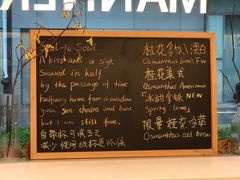 Soul to Soul
A kiss and a sigh
Sawed in half
by the passage of time
halfway home from a window
you see chains and bars
but i am still free.
自带杯可减五元
减少使用纸杯是环保
桂花拿铁/澳白
Osmanthus Latte/FW
桂花美式
Osmanthus Americano
冰甜拿铁 NEW
Spring
限量 桂花冷萃
Osmanthus cold brew